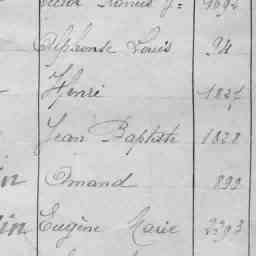 Alphonse Louis 24
Henri 1827
Jean Baptiste 1828
in Amand 899
in Eugène Marie 2293